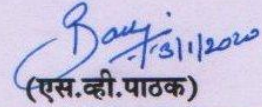 13/1/2020
(एस.व्ही.पाठक)